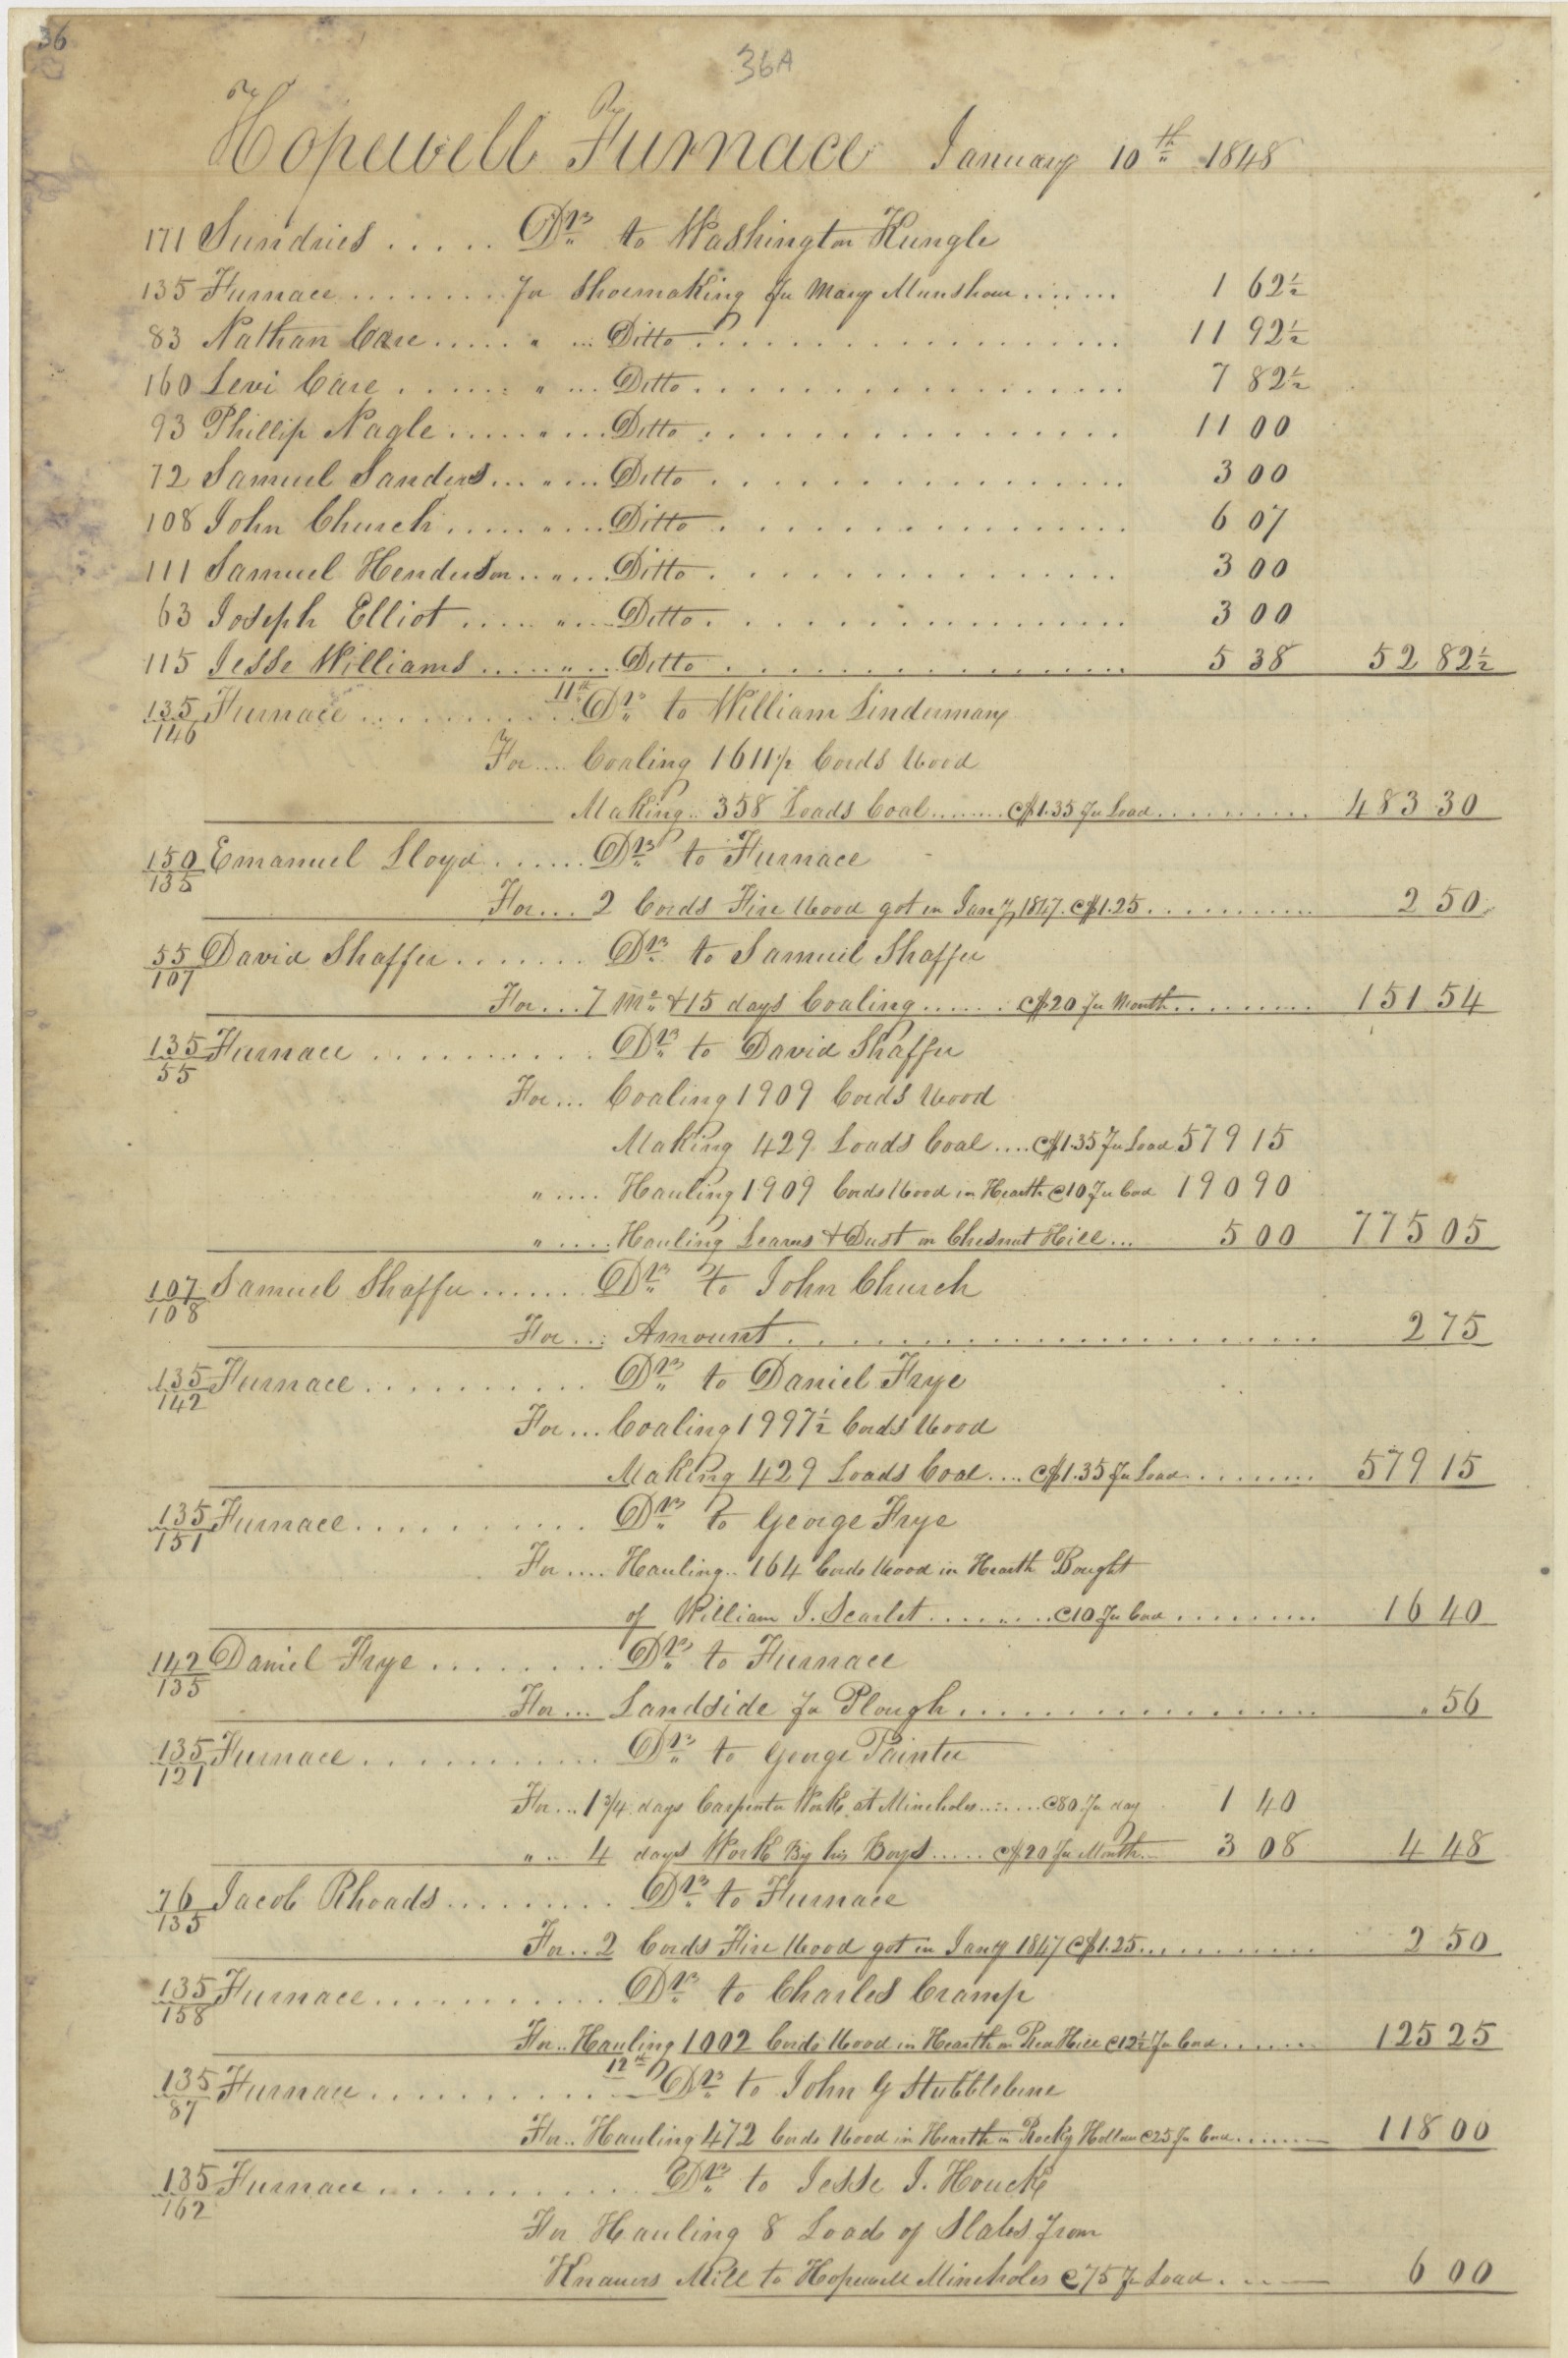 36
36A
Hopewell Furnace January 10th 1848
171 Sundries ..... Drs to Washington Kungle
135 Furnace ........ for Shoemaking for Mary Munshour ....... 1 62½
83 Nathan Care ..... " ... Ditto ................. 11 92½
160 Levi Care ...... " ... Ditto ................. 7 82½
93 Phillip Nagle ..... " ... Ditto ................ 11 00
72 Samuel Sanders ... " ... Ditto ................ 3 00
108 John Church ..... " ... Ditto ................ 6 07
111 Samuel Henderson .. " ... Ditto ............... 3 00
63 Joseph Elliot ..... " ... Ditto ................ 3 00
115 Jesse Williams ..... " ... Ditto ............... 5 38 52 82½
11th
135/146 Furnace .......... Drs to William Linderman
For .... Coaling 1611½ Cords Wood
Making .. 358 Loads Coal ....... @$1.35 Per Load ......... 483 30
150/135 Emanuel Lloyd ...... Drs to Furnace
For ... 2 Cords Fire Wood got in Jany 1847. @$1.25 .......... 2 50
55/107 David Shaffer ....... Drs to Samuel Shaffer
For ... 7 Mo & 15 days Coaling ...... @$20 Per Month ......... 151 54
135/55 Furnace .......... Drs to David Shaffer
For ... Coaling 1909 Cords Wood
Making 429 Loads Coal .... @$1.35 Per Load 579 15
" .... Hauling 1909 Cords Wood in Hearth @10 Per Cord 190 90
" .... Hauling Leaves & Dust on Chesnut Hill ... 5 00 775 05
107/108 Samuel Shaffer ....... Drs to John Church
For ... Amount ..................... 2 75
135/142 Furnace .......... Drs to Daniel Frye
For ... Coaling 1997½ Cords Wood
Making 429 Loads Coal .... @$1.35 Per Load ......... 579 15
135/151 Furnace .......... Drs to George Frye
For .... Hauling .. 164 Cords Wood in Hearth Bought
of William J. Scarlet ........ @10 Per Cord ......... 16 40
142/135 Daniel Frye ........ Drs to Furnace
For ... Landside for Plough ............... " 56
135/121 Furnace .......... Drs to George Painter
For ... 1¾ days Carpenter Work at Mineholes ....... @80 Per day 1 40
" .. 4 days Work By his Boys ..... @$20 Per Month ... 3 08 4 48
76/135 Jacob Rhoads ......... Drs to Furnace
For .. 2 Cords Fire Wood got in Jany 1847 @$1.25 .......... 2 50
135/158 Furnace .......... Drs to Charles Cramp
For .. Hauling 1002 Cords Wood in Hearth on Hill @12½ Per Cord ...... 125 25
12th
135/87 Furnace .......... Drs to John G Stubblebine
For .. Hauling 472 Cords Wood in Hearth in Rocky Hollow @25 Per Cord ....... 118 00
135/162 Furnace ........... Drs to Jesse J. Houck
For Hauling 8 Load of Slabs from
Knauers Mill to Hopewell Mineholes @75 Per Load .... 6 00